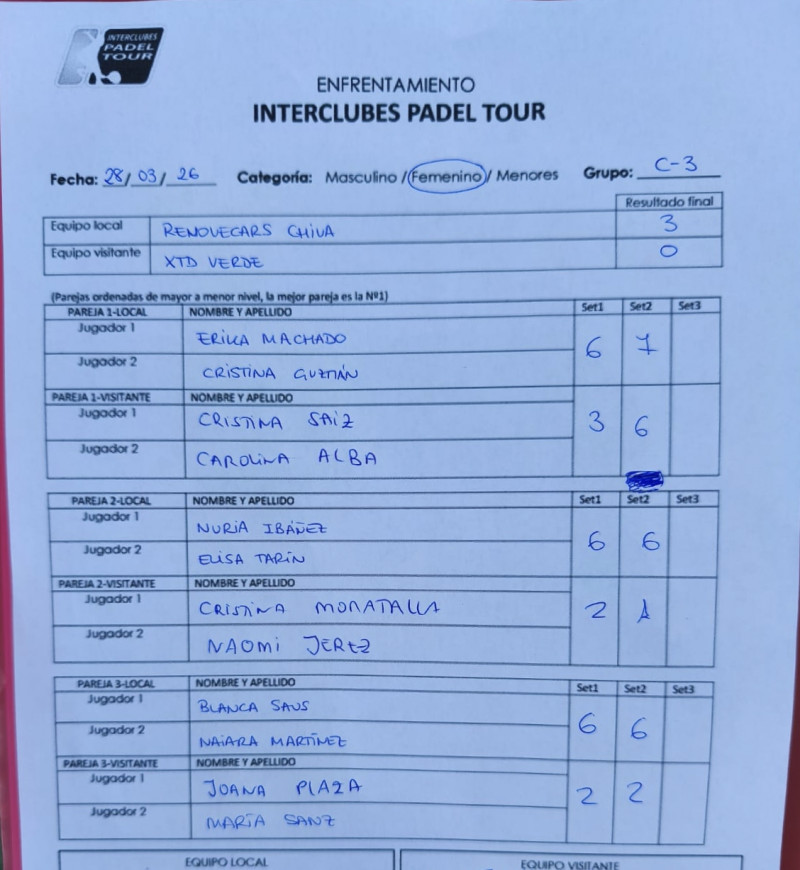 INTERCLUBES
PADEL
TOUR
ENFRENTAMIENTO
INTERCLUBES PADEL TOUR
Fecha: 28/03/26 Categoría: Masculino /Femenino/ Menores Grupo: C-3
Resultado final
Equipo local RENOVECARS CHIVA 3
Equipo visitante XTD VERDE 0
(Parejas ordenadas de mayor a menor nivel, la mejor pareja es la Nº1)
PAREJA 1-LOCAL NOMBRE Y APELLIDO Set1 Set2 Set3
Jugador 1 ERIKA MACHADO
6 7
Jugador 2 CRISTINA GUZMÁN
PAREJA 1-VISITANTE NOMBRE Y APELLIDO
Jugador 1 CRISTINA SAIZ
3 6
Jugador 2 CAROLINA ALBA
PAREJA 2-LOCAL NOMBRE Y APELLIDO Set1 Set2 Set3
Jugador 1 NURIA IBÁÑEZ
6 6
Jugador 2 ELISA TARÍN
PAREJA 2-VISITANTE NOMBRE Y APELLIDO
Jugador 1 CRISTINA MORATALLA
2 1
Jugador 2 NAOMI JEREZ
PAREJA 3-LOCAL NOMBRE Y APELLIDO Set1 Set2 Set3
Jugador 1 BLANCA SAUS
6 6
Jugador 2 NAIARA MARTÍNEZ
PAREJA 3-VISITANTE NOMBRE Y APELLIDO
Jugador 1 JOANA PLAZA
2 2
Jugador 2 MARÍA SANZ
EQUIPO LOCAL EQUIPO VISITANTE